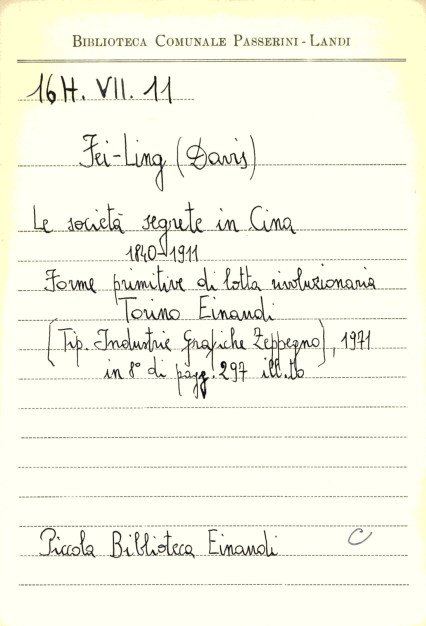 BIBLIOTECA COMUNALE PASSERINI - LANDI
16 H. VII. 11
Fei-Ling (Davis)
Le società segrete in Cina
1840-1911
Forme primitive di lotta rivoluzionaria
Torino Einaudi
[Tip. Industrie Grafiche Zeppegno], 1971
in 8° di pagg. 297 ill.to
Piccola Biblioteca Einaudi C